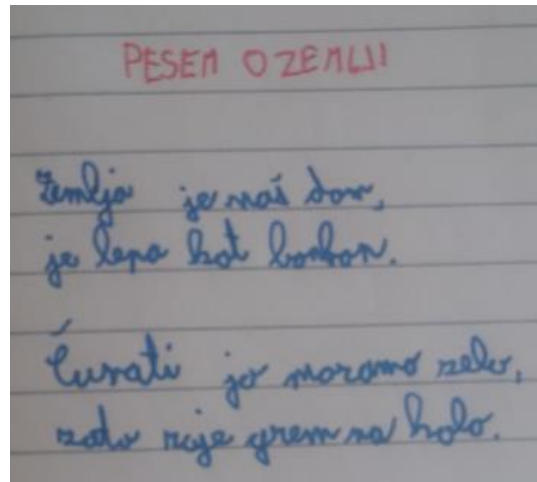 PESEM O ZEMLJI
Zemlja je naš dom,
je lepa kot bonbon.
Čuvati jo moramo zelo,
zato raje grem na kolo.